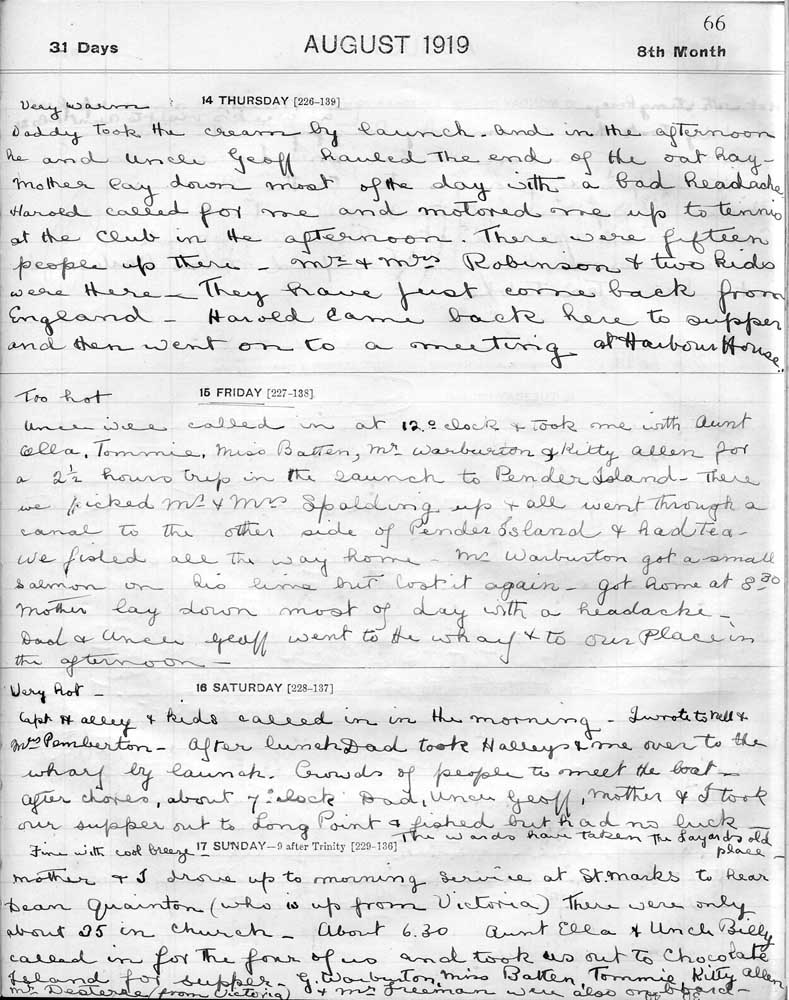 66
31 Days AUGUST 1919 8th Month
Very warm 14 THURSDAY [226-139]
Daddy took the cream by launch - and in the afternoon
he and Uncle Geoff hauled the end of the oat hay -
Mother lay down most of the day with a bad headache
Harold called for me and motored me up to tennis
at the Club in the afternoon. There were fifteen
people up there - Mr & Mrs Robinson & two kids
were there - They have just come back from
England - Harold came back here to supper
and then went on to a meeting at Harbour House.
Too hot 15 FRIDAY [227-138]
Uncle called in at 12 o clock & took me with Aunt
Ella, Tommie, Miss Batten, Mr Warburton & Kitty Allen for
a 2½ hours trip in the launch to Pender Island - There
we picked Mr & Mrs Spalding up & all went through a
canal to the other side of Pender Island & had tea -
We fished all the way home - Mr Warburton got a small
salmon on his line but lost it again - got home at 8.30
Mother lay down most of day with a headache -
Dad & Uncle Geoff went to the wharf & to our Place in
the afternoon -
Very hot - 16 SATURDAY [228-137]
Capt Halley & kids called in in the morning - I wrote to Nell &
Mrs Pemberton - After lunch Dad took Halleys & me over to the
wharf by launch. Crowds of people to meet the boat -
After chores, about 7 o'clock Dad, Uncle Geoff, Mother & I took
our supper out to Long Point & fished but had no luck -
The Wards have taken the Layards old
place -
Fine with cool breeze - 17 SUNDAY—9 after Trinity [229-136]
Mother & I drove up to morning service at St. Marks to hear
Dean Quainton (who is up from Victoria) There were only
about 25 in church - About 6.30 Aunt Ella & Uncle Billy
called in for the four of us and took us out to Chocolate
Island for supper - G. Warburton, Miss Batten, Tommie, Kitty Allen
Mr (from Victoria) & Mr Freeman were also on board -